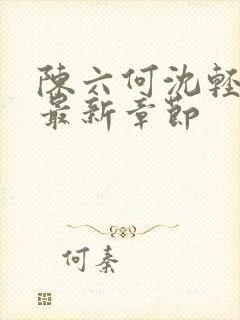 陳六何沈輕
最新章節
何秦